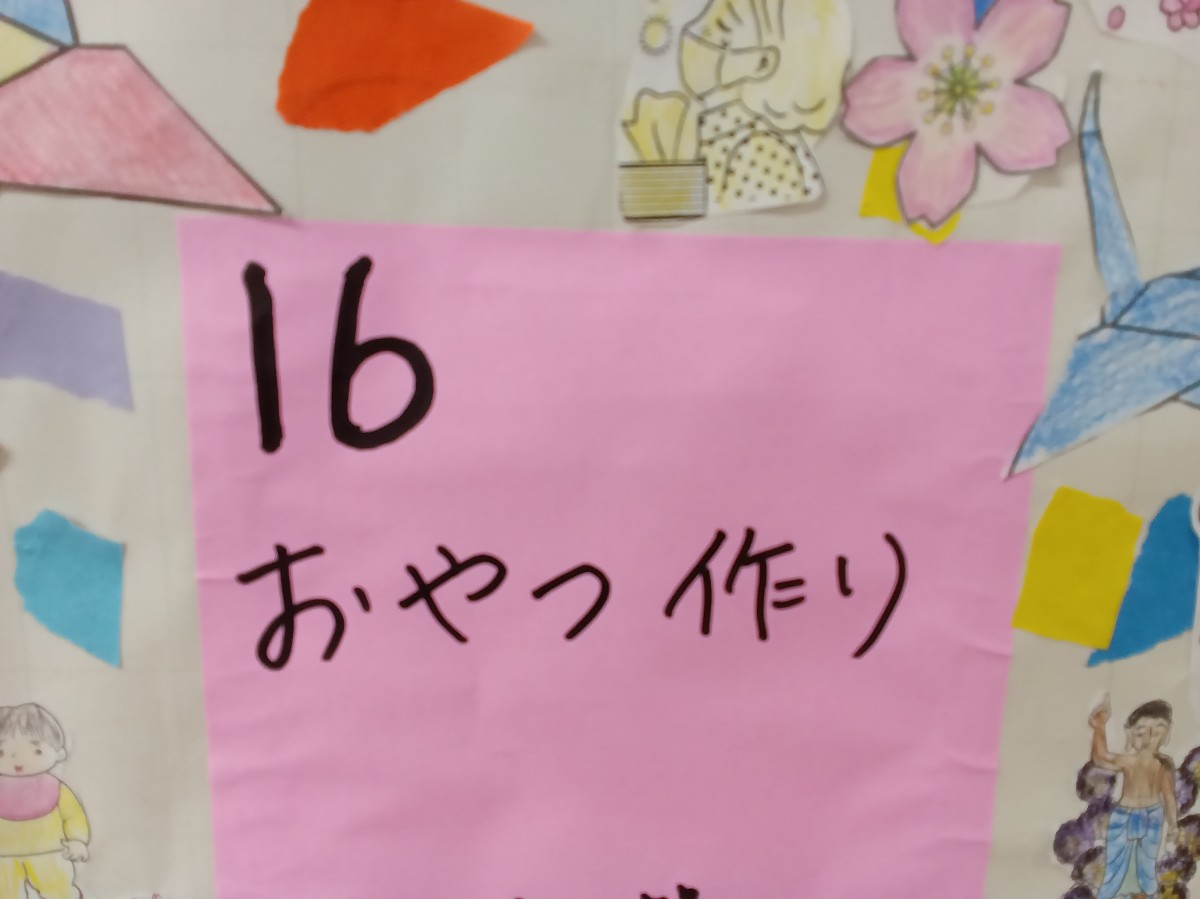 16
おやつ作り